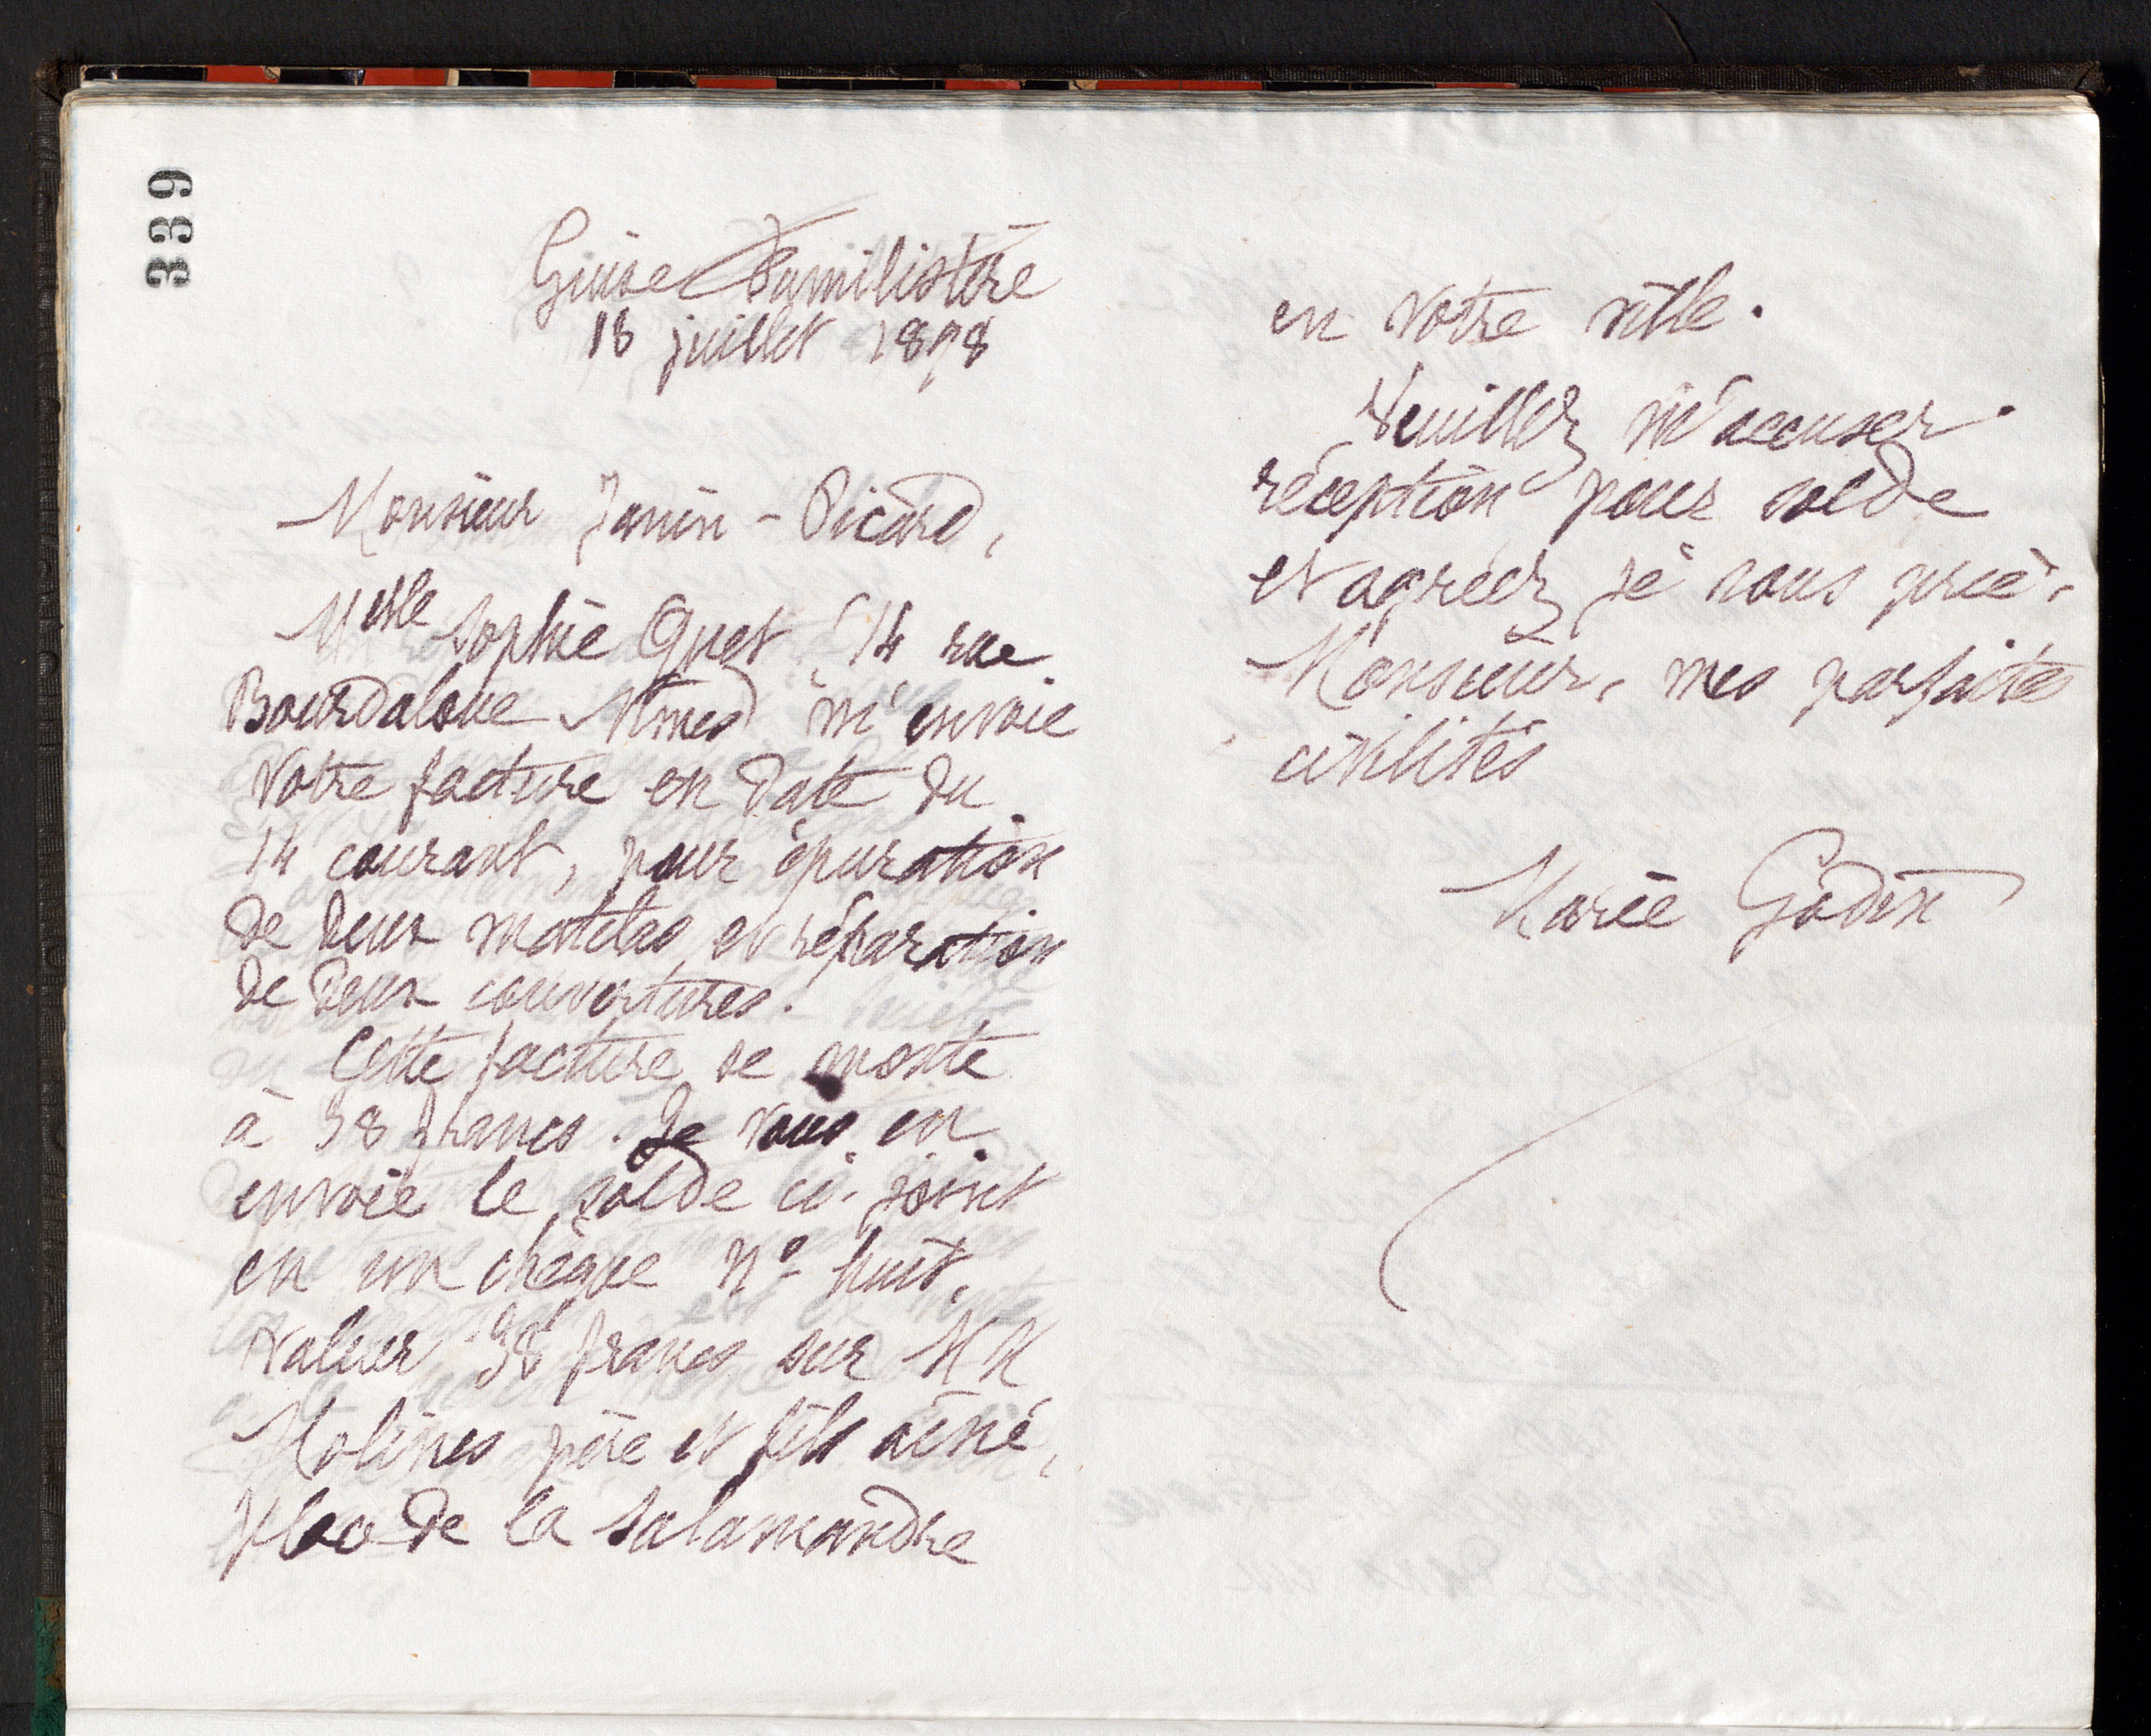 339
Guise Familistère
18 juillet 1898
Monsieur Janin-Picard,
Melle Sophie Quet (14 rue
Bourdaloue Nîmes) m'envoie
votre facture en date du
14 courant, pour épuration
de deux matelas et réparation
de deux couvertures.
Cette facture se monte
à 38 francs. Je vous en
envoie le solde ci-joint
en un chèque no huit,
valeur 38 francs sur MM
Molines père et fils aîné,
place de la Salamandre
en votre ville.
Veuillez m'accuser
réception pour solde
et agréez je vous prie,
Monsieur, mes parfaites
civilités
Marie Godin